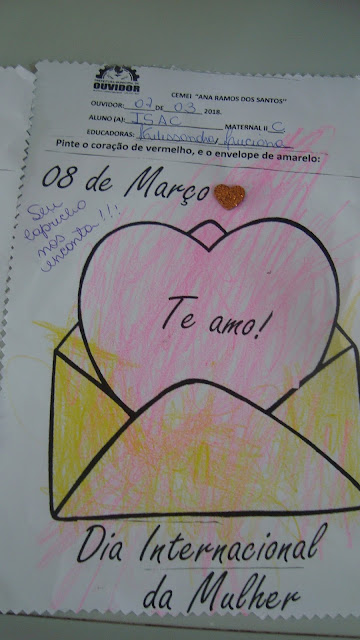 OUVIDOR
CEMEI "ANA RAMOS DOS SANTOS"
OUVIDOR: 07 DE 03 2018.
ALUNO (A): ISAC MATERNAL II C.
EDUCADORAS: Luciana
Pinte o coração de vermelho, e o envelope de amarelo:
08 de Março
Seu
capricho
nos
encanta!!!
Te amo!
Dia Internacional
da Mulher